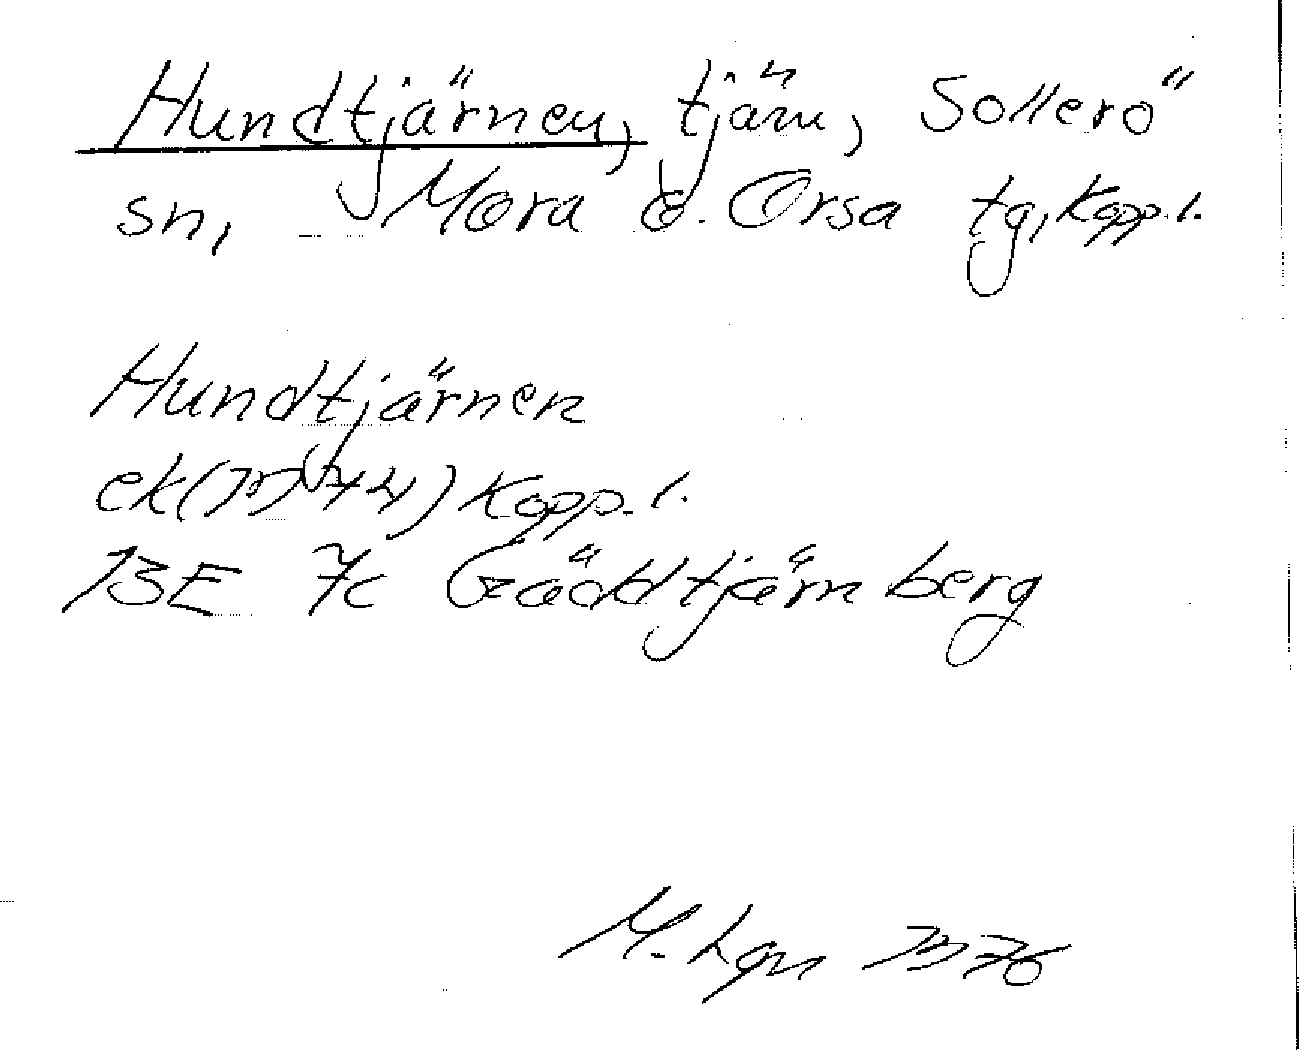 Hundtjärnen, tjärn, Sollerö
sn, Mora o. Orsa tg, Kopp. l.
Hundtjärnen
ek (1974) Kopp. l.
13E 7c Gäddtjärnberg
M. 1976